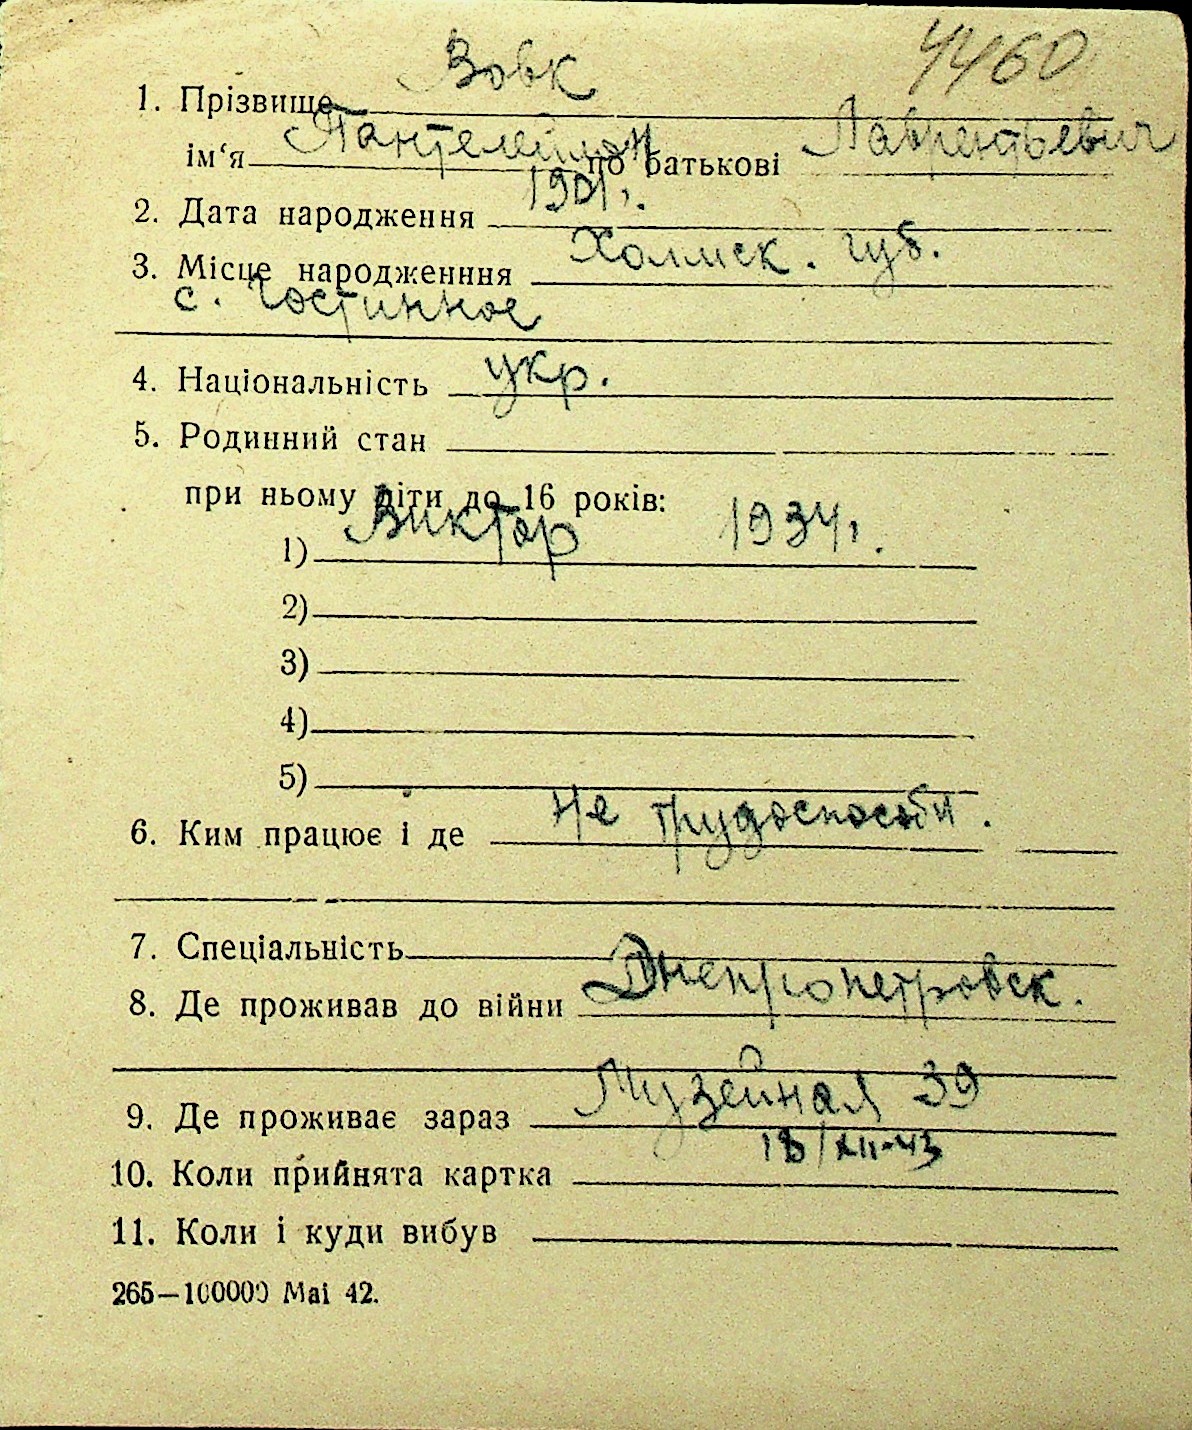 4460
1. Прізвище Вовк
ім‘я Пантелеймон по батькові Лаврентьевич
2. Дата народження 1901 г.
3. Місце народженння Холмск. губ.
с. Гостинное
4. Національність укр.
5. Родинний стан
при ньому діти до 16 років:
1) Виктор 1934 г.
2)
3)
4)
5)
6. Ким працює і де не трудоспособн.
7. Спеціальність
8. Де проживав до війни Днепропетровск.
9. Де проживає зараз Музейная 39
10. Коли прийнята картка 18/XII-43
11. Коли і куди вибув
265—100000 Mai 42.